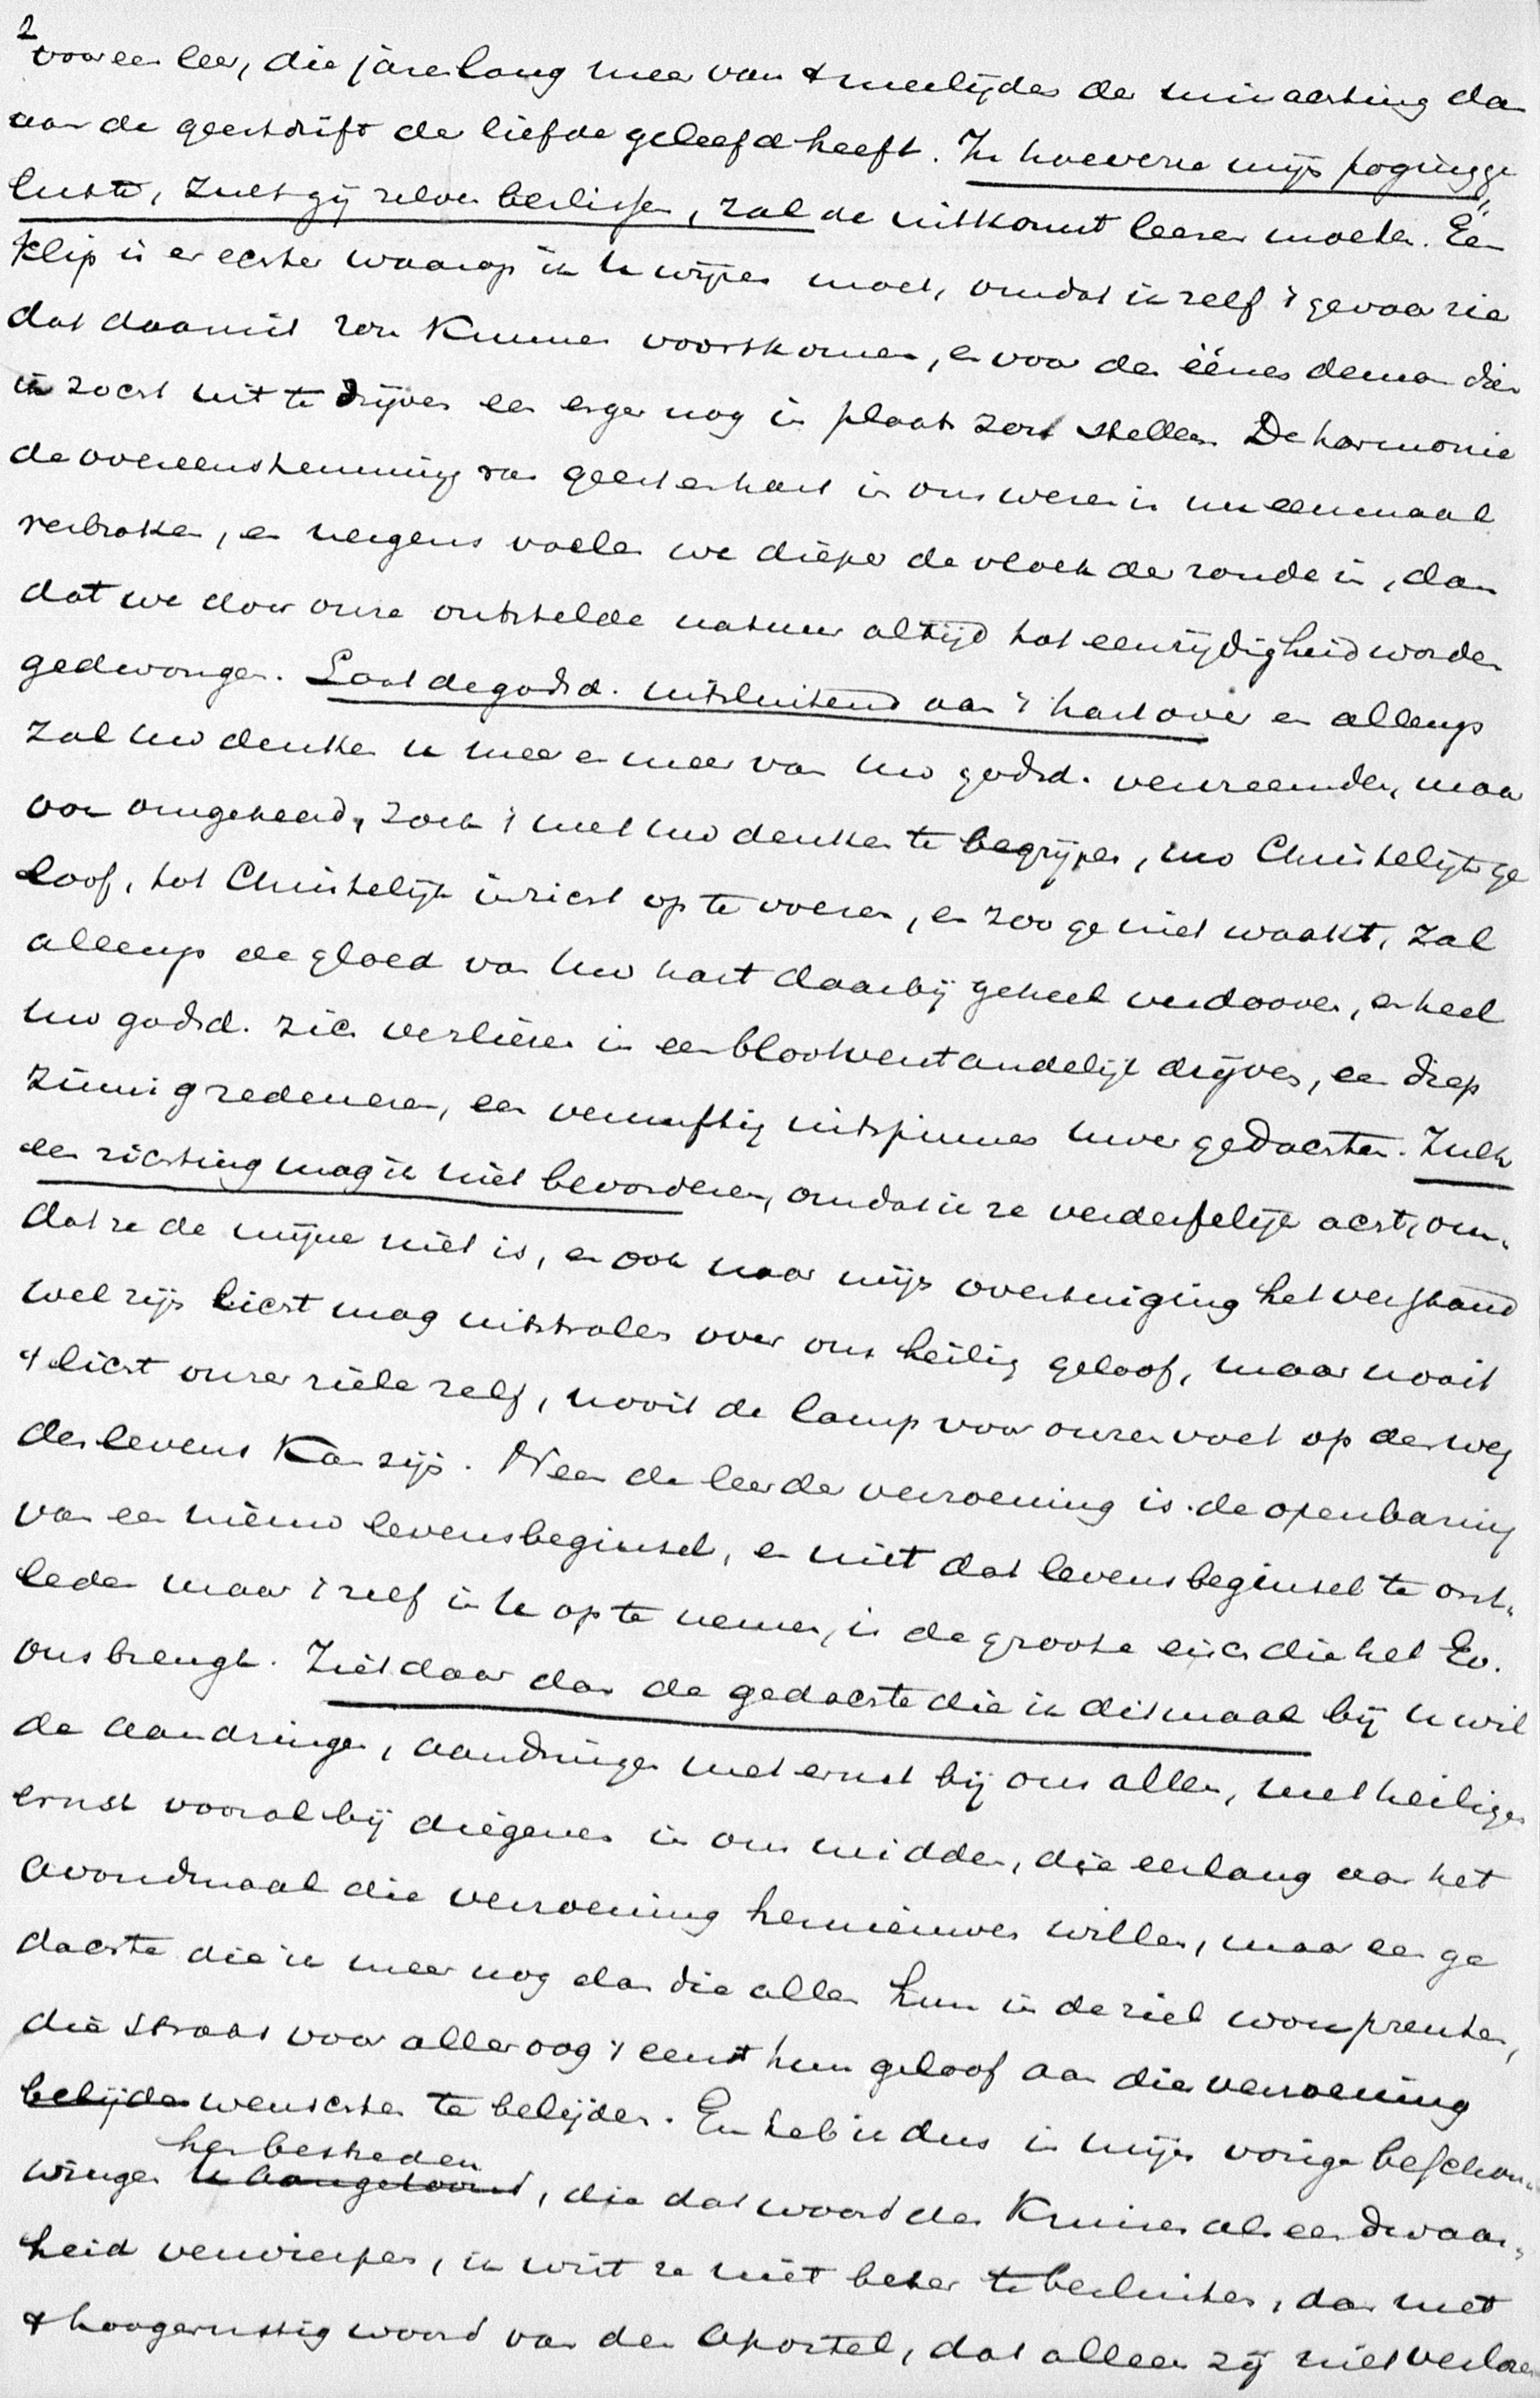 2
voor een leer, die jarenlang meer van 't medelijden der minachting dan
van de geestdrift der liefde geleefd heeft. In hoeverre mijn poging ge
lukte, zult gij zelven beslissen, zal de uitkomst leeren moeten. Eén
klip is er echter waarop ik U wijzen moet, omdat ik zelf 't gevaar zie
dat daaruit zou kunnen voortkomen, en voor den éénen demon dien
ik zocht uit te drijven een erger nog in plaats zou stellen. De harmonie
de overeenstemming van geest en hart in ons wezen is nu eenmaal
verbroken, en nergens voelen we dieper de vloek der zonde in, dan
dat we door onze ontstelde natuur altijd tot eenzijdigheid worden
gedwongen. Laat de godsd. uitsluitend aan 't hart over en allengs
zal uw denken u meer en meer van uw godsd. vervreemden, maar
ook omgekeerd, zoek 't met uw denken te begrijpen, uw Christelijk ge
loof, tot Christelijk inzicht op te voeren, en zoo ge niet waakt, zal
allengs de gloed van uw hart daarbij geheel verdooven, en heel
uw godsd. zich verliezen in een bloot verstandelijk drijven, een diep
zinnig redeneren, een vernuftig uitspinnen uwer gedachten. Zulk
een richting mag ik niet bevorderen, omdat ik ze verderfelijk acht, om-
dat ze de mijne niet is, en ook naar mijn overtuiging het verstand
wel zijn licht mag uitstralen over ons heilig geloof, maar nooit
't licht onzer ziele zelf, nooit de lamp voor onzen voet op den weg
des levens kan zijn. Neen de leer der verzoening is de openbaring
van een nieuw levensbeginsel, en niet dat levensbeginsel te ont-
leden maar 't zelf in U op te nemen, is de groote eisch die het Ev.
ons brengt. Ziet daar dan de gedachte die ik ditmaal bij U wil
de aandringen, aandringen met ernst bij ons allen, met heiligen
ernst vooral bij diegenen in ons midden, die eerlang aan het
avondmaal die verzoening hernieuwen willen, maar een ge
dachte die ik meer nog dan die allen hun in de ziel wou prenten,
die straks voor aller oog 't eerst hun geloof aan die verzoening
belijden wenschen te belijden. En heb ik dus in mijn vorige beschou-
wingen u aangetoond hen bestreden, die dat woord des Kruises als een dwaas-
heid verwierpen, ik wist ze niet beter te besluiten, dan met
't hoogernstig woord van den Apostel, dat alleen zij niet verloren